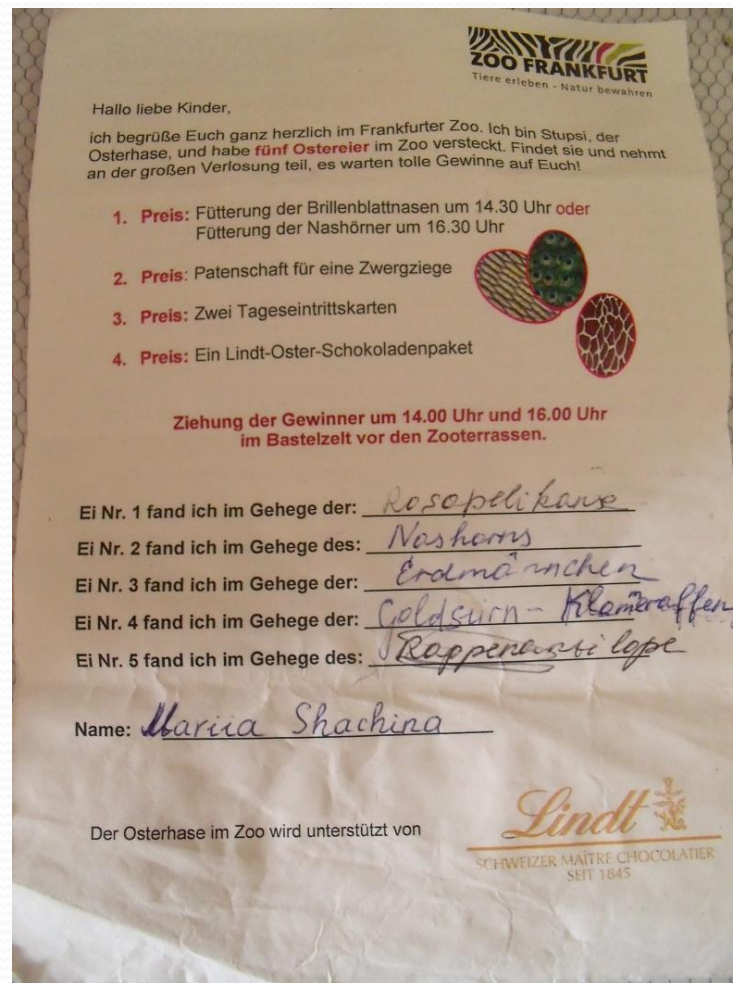 ZOO FRANKFURT
Tiere erleben - Natur bewahren
Hallo liebe Kinder,
ich begrüße Euch ganz herzlich im Frankfurter Zoo. Ich bin Stupsi, der
Osterhase, und habe fünf Ostereier im Zoo versteckt. Findet sie und nehmt
an der großen Verlosung teil, es warten tolle Gewinne auf Euch!
1. Preis: Fütterung der Brillenblattnasen um 14.30 Uhr oder
Fütterung der Nashörner um 16.30 Uhr
2. Preis: Patenschaft für eine Zwergziege
3. Preis: Zwei Tageseintrittskarten
4. Preis: Ein Lindt-Oster-Schokoladenpaket
Ziehung der Gewinner um 14.00 Uhr und 16.00 Uhr
im Bastelzelt vor den Zooterrassen.
Ei Nr. 1 fand ich im Gehege der: Rosapelikane
Ei Nr. 2 fand ich im Gehege des: Nashorns
Ei Nr. 3 fand ich im Gehege der: Erdmännchen
Ei Nr. 4 fand ich im Gehege der: Goldstirn - Klameraffen
Ei Nr. 5 fand ich im Gehege des: Rappenantilope
Name: Mariia Shachina
Der Osterhase im Zoo wird unterstützt von
Lindt
SCHWEIZER MAÎTRE CHOCOLATIER
SEIT 1845